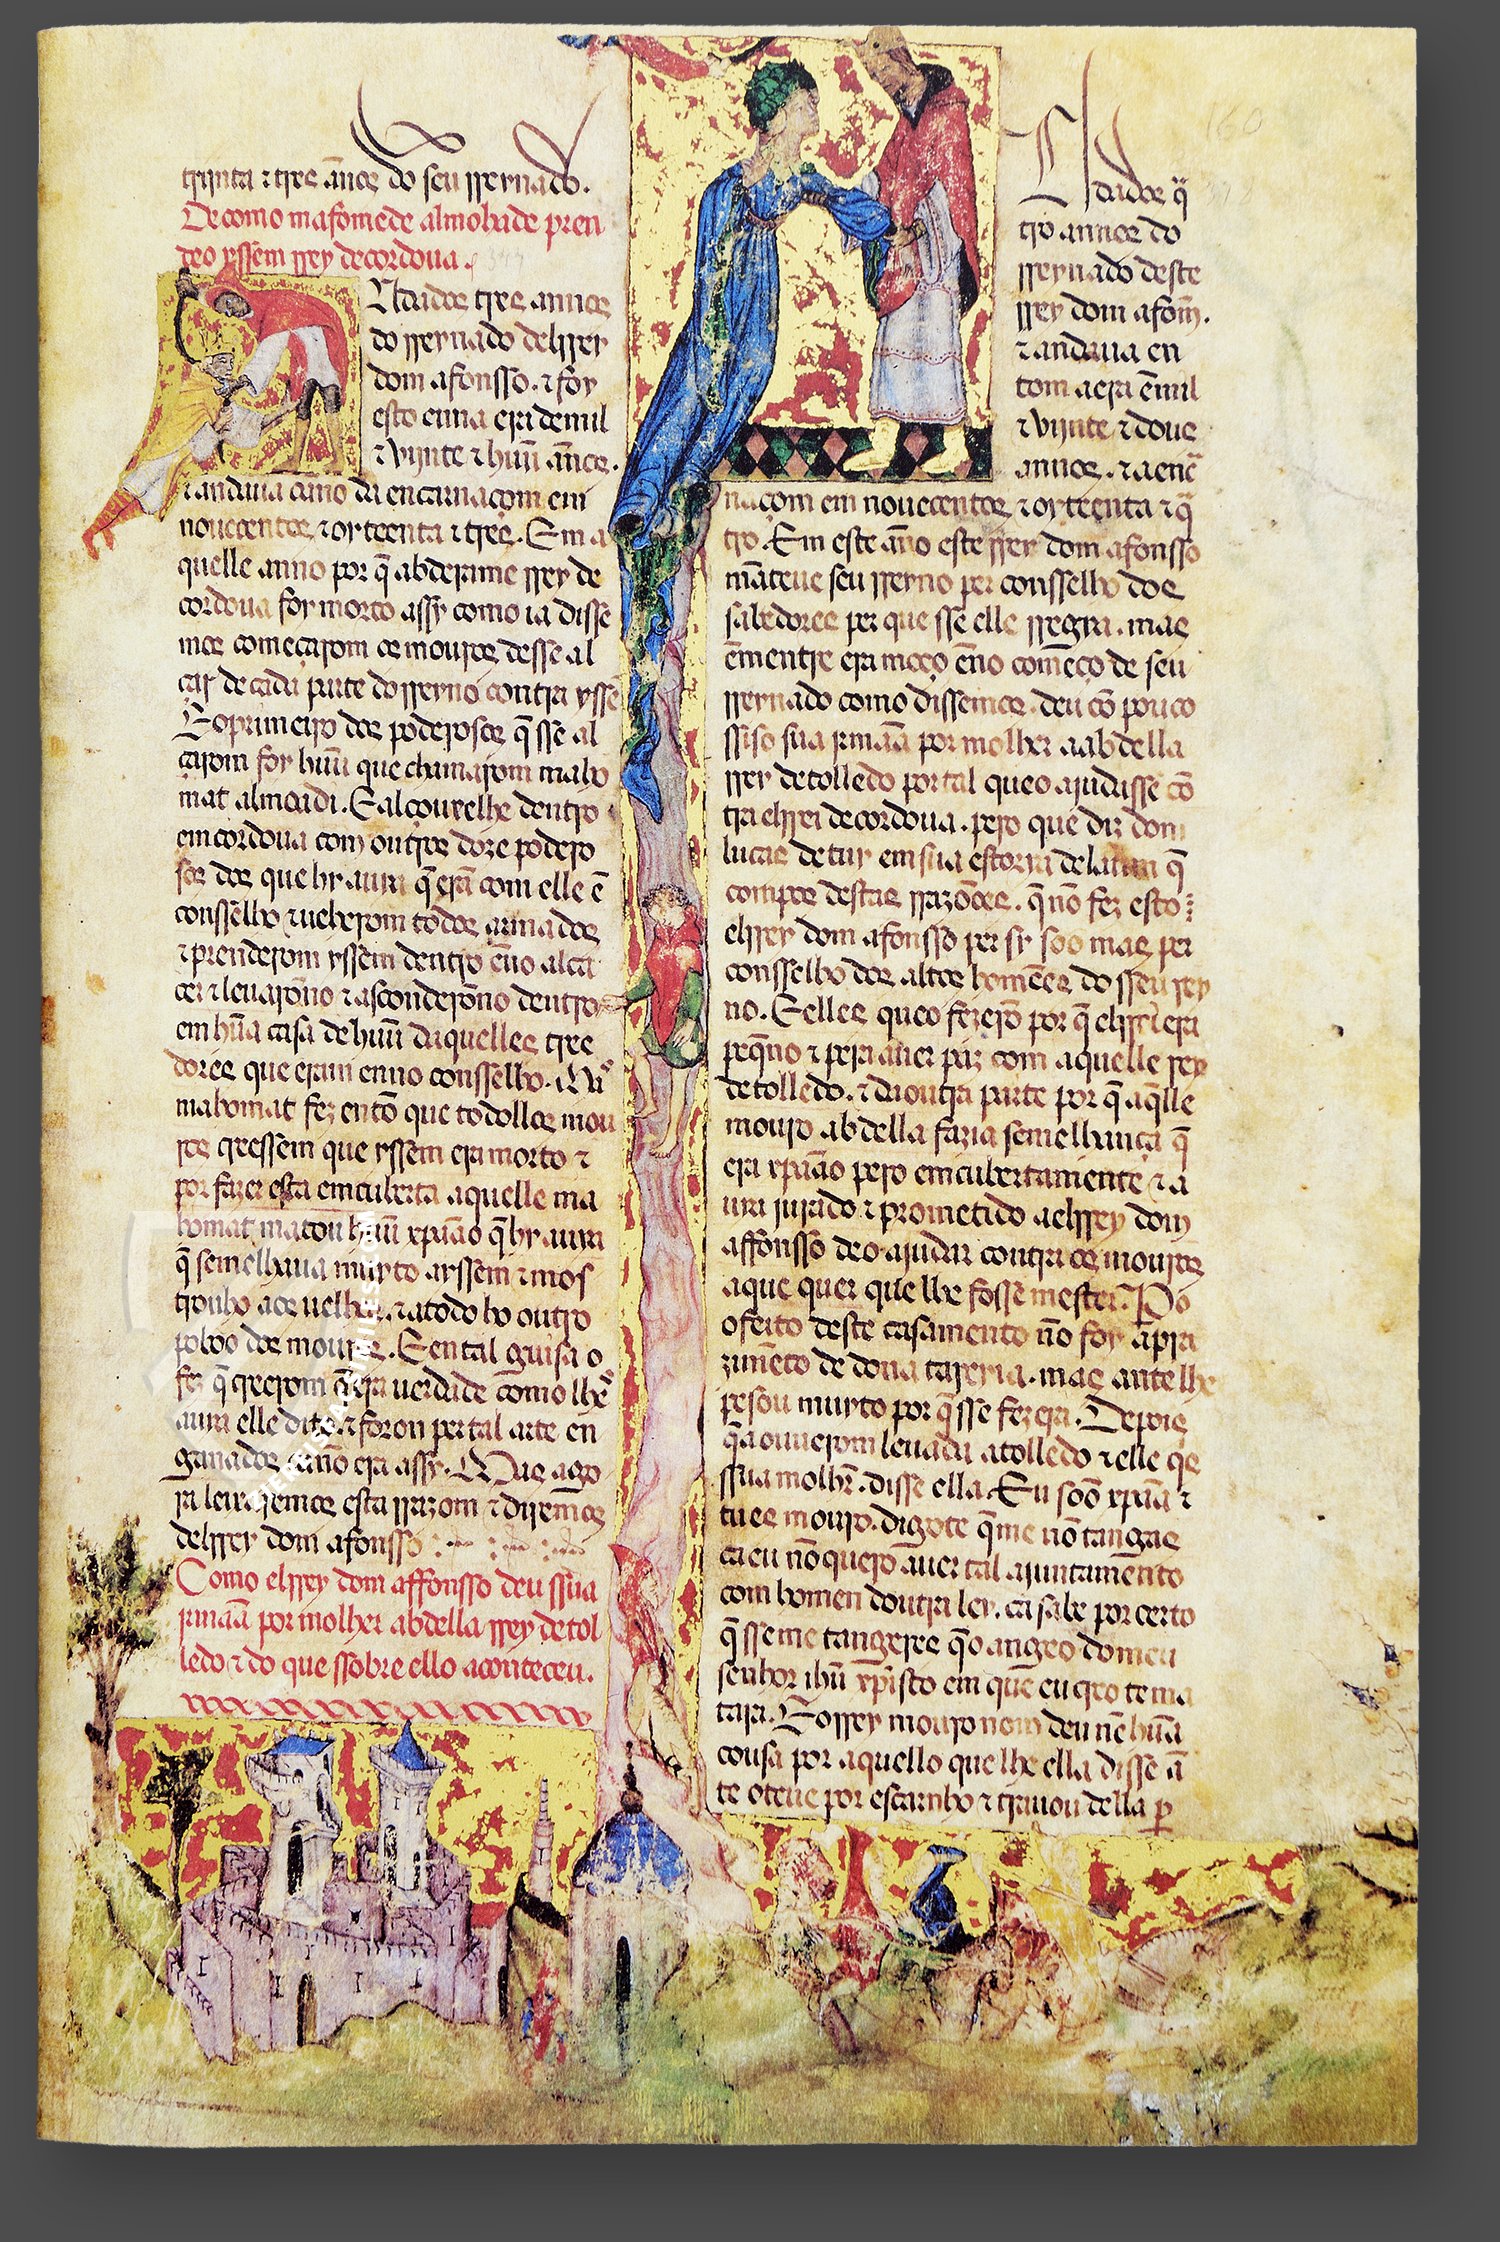 trijnta ⁊ tres ãnos do seu rreynado.
De como mafomede almohade pren
deo yssem rrey de cordoua.
Andados tres annos
do rreynado delrrey
dom afonsso. ⁊ foy
esto enna era de mil
⁊ vijnte ⁊ huũ ãnos.
⁊ andaua o ãno da encarnaçom em
nouecentos ⁊ oyteenta ⁊ tres. Em a
quelle anno por q̃ abderame rrey de
cordoua foy morto assy como ia disse
mos começarom os mouros desse al
çar de cada parte do rreyno contra yssẽ
E o primeiro dos poderosos q̃ sse al
çarom foy huũ que chamarom maho
mat almoadi. E alçouxelhe dentro
em cordoua com outros doze podero
sos dos que hy auia q̃ erã com elle ẽ
consselho ⁊ ueherom todos armados
⁊ prenderom yssem dentro ẽno alca
cer ⁊ leuarõno ⁊ asconderõno dentro
em hũa casa de huũ daquelles tree
dores que eram enno consselho. Mas
mahomat fez entõ que todollos mou
ros cressem que yssem era morto ⁊
por fazer esta encuberta aquelle ma
homat matou huũ xpaão q̃ hy auia
q̃ semelhaua muyto a yssem ⁊ mos
trouho aos uelhos. ⁊ a todo ho outro
poboo dos mouros. E en tal guisa o
fez q̃ creerom q̃ era uerdade como lhes
auia elle dito. ⁊ foron per tal arte en
ganados ca nõ era assy. Mas ago
ra leixaremos esta rrazom ⁊ diremos
delrrey dom afonsso
Como elrrey dom affonsso deu ssua
jrmaã por molher abdella rrey de tol
ledo ⁊ do que ssobre ello aconteceu.
160
Andados q̃
tro annos do
rreynado deste
rrey dom afom̃.
⁊ andaua en
tom a era ẽ mil
⁊ vijnte ⁊ dous
annos. ⁊ a encar
naçom em nouecentos ⁊ oyteenta ⁊ q̃
tro. Em este ãno este rrey dom afonsso
mãteue seu rreyno per consselho dos
sabedores per que sse elle rregia. mas
ẽmentre era moço ẽno começo de seu
rreynado como dissemos. deu cõ pouco
ssiso sua jrmaã por molher a abdella
rrey de tolledo por tal que o ajudasse cõ
tra elrrei de cordoua. pero que diz dom
lucas de tuy em sua estoria de latim q̃
compos destas rrazõoes. q̃ nõ fez esto
elrrey dom afonsso per sy soo mas per
consselho dos altos homẽes do sseu rey
no. E elles que o fezerõ por q̃ elrrei era
peq̃no ⁊ pera auer paz com aquelle rey
de tolledo. ⁊ da outra parte por q̃ aq̃lle
mouro abdella fazia semelhança q̃
era xpaão pero emcubertamente ⁊ a
uia jurado ⁊ prometido a elrrey dom
affonsso deo ajudar contra os mouros
a que quer que lhe fosse mester. Po
o feito deste casamento nõ foy a pra
zimẽto de dona tareyia. mas ante lhe
pesou muyto por q̃ sse fezera. Depois
q̃ a ouuerom leuada a tolledo ⁊ elle q̃s
ssua molhr̃. disse ella. Eu soõ xpaã ⁊
tu es mouro. digote q̃ me nõ tangas
ca eu nõ quero auer tal ajuntamento
com homen doutra ley. ca sabe por certo
q̃ sse me tangeres q̃ o angeo do meu
senhor ihũ xp̃isto em que eu creo te ma
tara. E o rrey mouro nom deu nẽ hũa
cousa por aquello que lhe ella disse ã
te o teue por escarnho ⁊ trauou della ꝑ